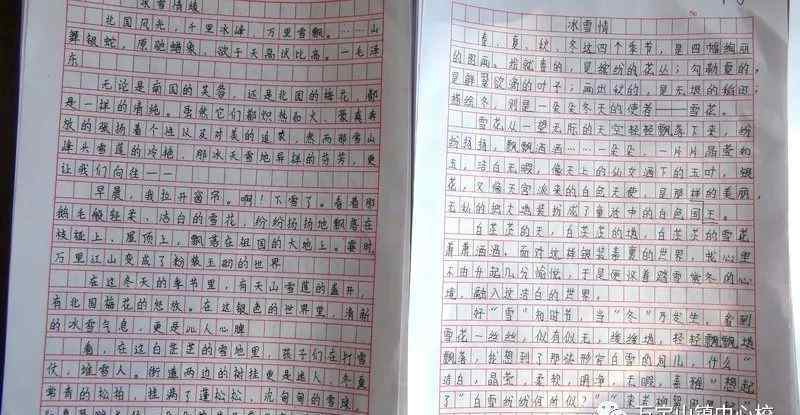 冰雪情缘
北国风光，千里冰峰，万里雪飘。……山
舞银蛇，原驰蜡象，欲于天高伏比高。一毛泽
东
无论是南国的芙蓉，还是北国的梅花，都
是一样的清纯。虽然它们都炽热如火、轰轰轰
放的张扬着个性以及对美的追求，然而那雪山
连头雪莲的冷艳，那冰天雪地异样的芬芳，更
让我们向往——
早晨，我拉开窗帘。啊！下雪了。看着那
鹅毛般轻柔、洁白的雪花，纷纷扬扬地飘落在
枝桠上，屋顶上，飘落在祖国的大地上。霎时，
万里江山变成了粉装玉砌的世界
在这冬天的季节里，有天山雪莲的盛开，
有北国梅花的怒放。在这银色的世界里，清新
的冰雪气息，更是沁人心脾
看，在这白茫茫的雪地里，孩子们在打雪
仗，堆雪人。街道两边的树挂更是迷人，冬夏
常青的松柏，挂满了蓬松松，沉甸甸的雪球，
冰雪情
春、夏、秋、冬这四个季节，是四幅绚丽
的图画。描就春的，是缤纷的花丛；勾勒夏的，
是鲜翠欲滴的叶子；画出秋的，是无垠的稻田；
描绘冬，则是一朵朵冬天的使者——雪花。
雪花从一望无际的天空轻轻飘落下来，纷
纷扬扬，飘飘洒洒……一朵朵，一片片晶莹如
玉，洁白无暇，像天上的仙女洒下的玉叶，银
花，又像天宫派来的白色天使，是那样的美丽，
无私的把大地装扮成了童话中的白色国天。
白茫茫的天，白茫茫的地，白茫茫的雪花
萧萧洒洒，面对这样银装素裹的世界，我心里
不由升起几分愉悦，于是便怀着踏雪赏冬的心
境，融入这洁白的世界。
好"雪"知时节，当"冬"乃发生，看到
雪花一丝丝，似有似无，缓缓地，轻轻飘飘地
飘落，我想到了那些形容白雪的词儿，什么"
洁白，晶莹，柔软，明净，无暇，素雅"想起
了"白雪纷纷何所似？"